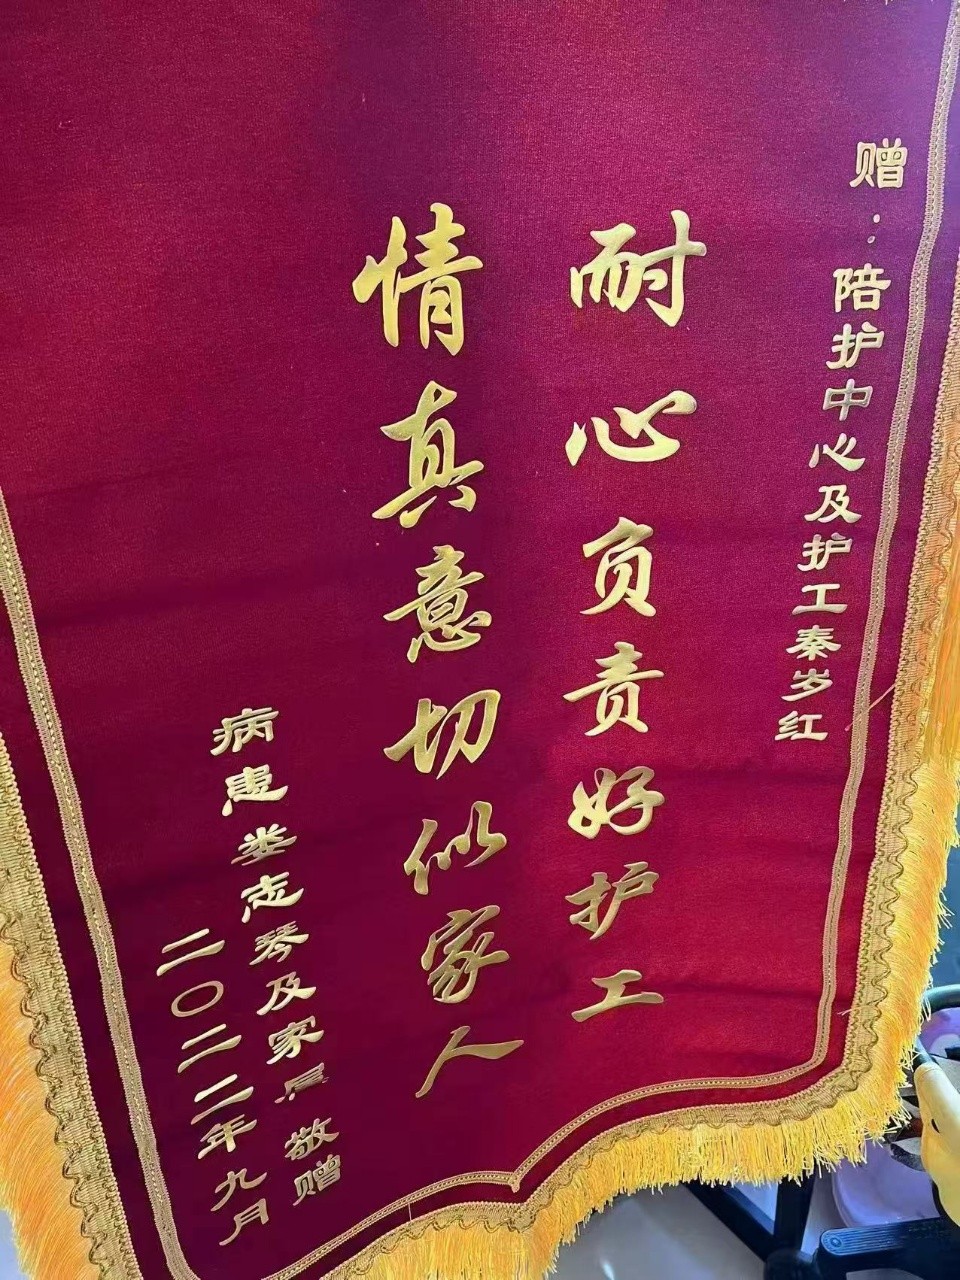 赠：陪护中心及护工秦岁红
耐心负责好护工
情真意切似家人
病患娄志琴及家属 敬赠
二〇二二年九月